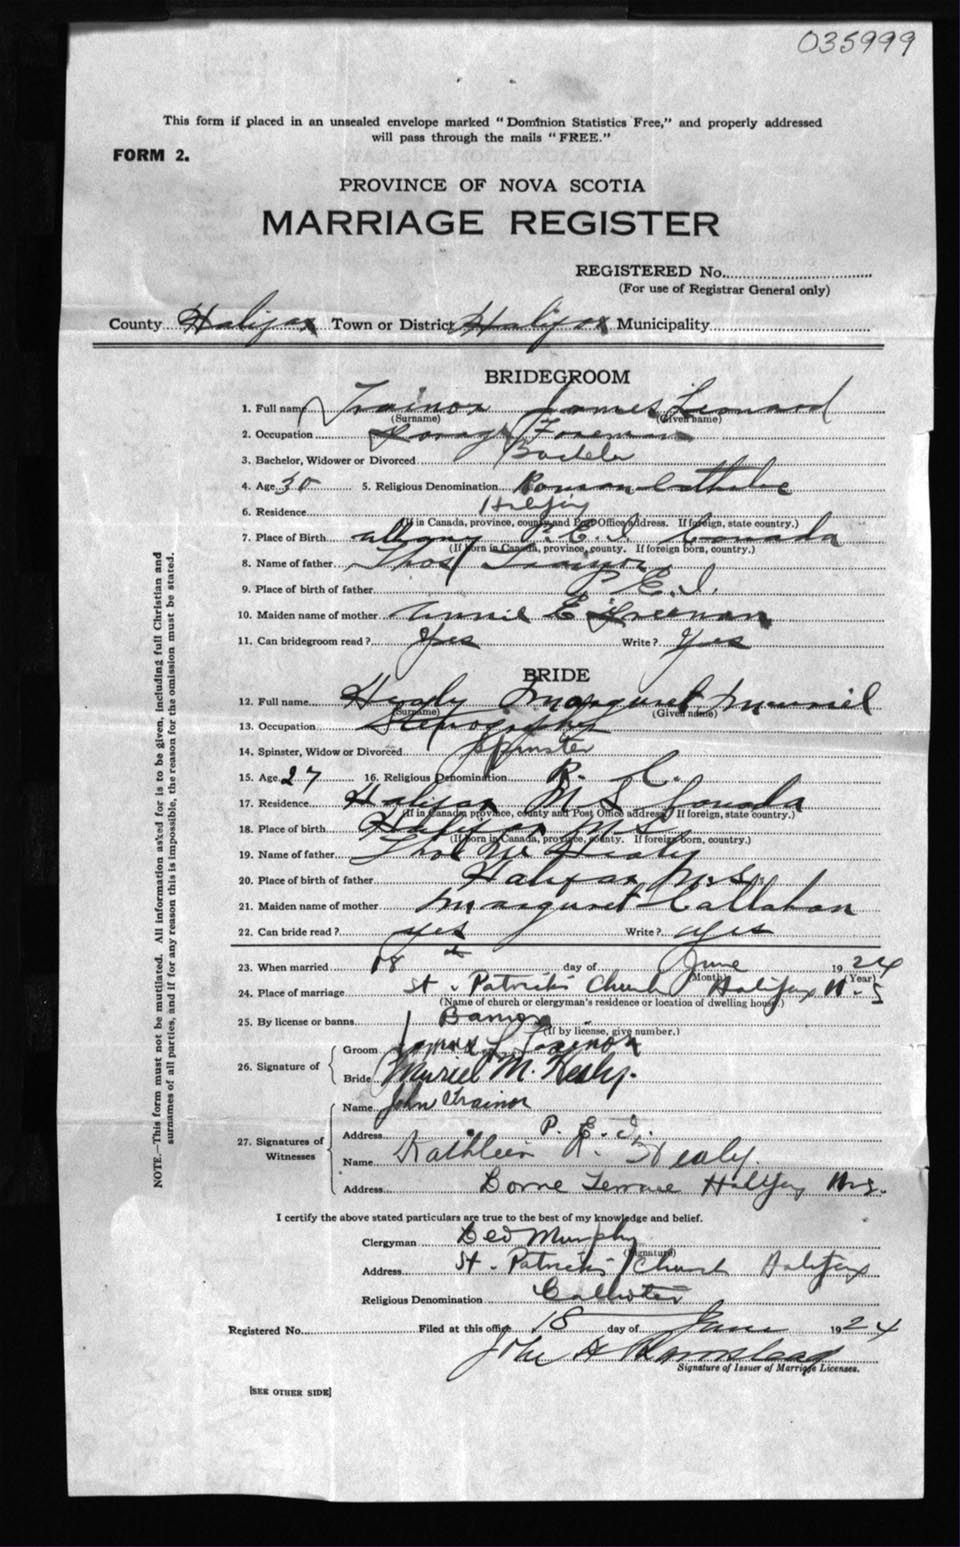 035999
This form if placed in an unsealed envelope marked "Dominion Statistics Free," and properly addressed
will pass through the mails "FREE."
FORM 2.
PROVINCE OF NOVA SCOTIA
MARRIAGE REGISTER
REGISTERED No.
(For use of Registrar General only)
County Halifax Town or District Halifax Municipality
BRIDEGROOM
1. Full name Trainor James Leonard
(Surname) (Given name)
2. Occupation Foreman
3. Bachelor, Widower or Divorced Bachelor
4. Age 30 5. Religious Denomination Roman Catholic
6. Residence Halifax
(If in Canada, province, county and Post Office address. If foreign, state country.)
7. Place of Birth Albany P.E.I. Canada
(If born in Canada, province, county. If foreign born, country.)
8. Name of father Thos Trainor
9. Place of birth of father P.E.I.
10. Maiden name of mother Annie E Freeman
11. Can bridegroom read? Yes Write? Yes
BRIDE
12. Full name Healy Margaret Muriel
(Surname) (Given name)
13. Occupation Stenographer
14. Spinster, Widow or Divorced Spinster
15. Age 27 16. Religious Denomination R. C.
17. Residence Halifax N S Canada
(If in Canada province, county and Post Office address. If foreign, state country.)
18. Place of birth Halifax N S
(If born in Canada, province, county. If foreign born, country.)
19. Name of father Thos Healy
20. Place of birth of father Halifax N.S.
21. Maiden name of mother Margaret Callahan
22. Can bride read? yes Write? yes
23. When married 18 day of June 1924
(Month) (Year)
24. Place of marriage St. Patrick's Church Halifax N.S
(Name of church or clergyman's residence or location of dwelling house.)
25. By license or banns Banns
(If by license, give number.)
26. Signature of
Groom James L. Trainor
Bride Muriel M. Healy.
27. Signatures of Witnesses
Name John Trainor
Address P. E. I.
Name Kathleen R. Healy.
Address Terrace Halifax N.S.
I certify the above stated particulars are true to the best of my knowledge and belief.
Clergyman Geo Murphy
(Signature)
Address St. Patrick's Church Halifax
Religious Denomination Catholic
Registered No. Filed at this office 18 day of June 1924
John A
Signature of Issuer of Marriage Licenses.
[SEE OTHER SIDE]
NOTE.—This form must not be mutilated. All information asked for is to be given, including full Christian and
surnames of all parties, and if for any reason this is impossible, the reason for the omission must be stated.